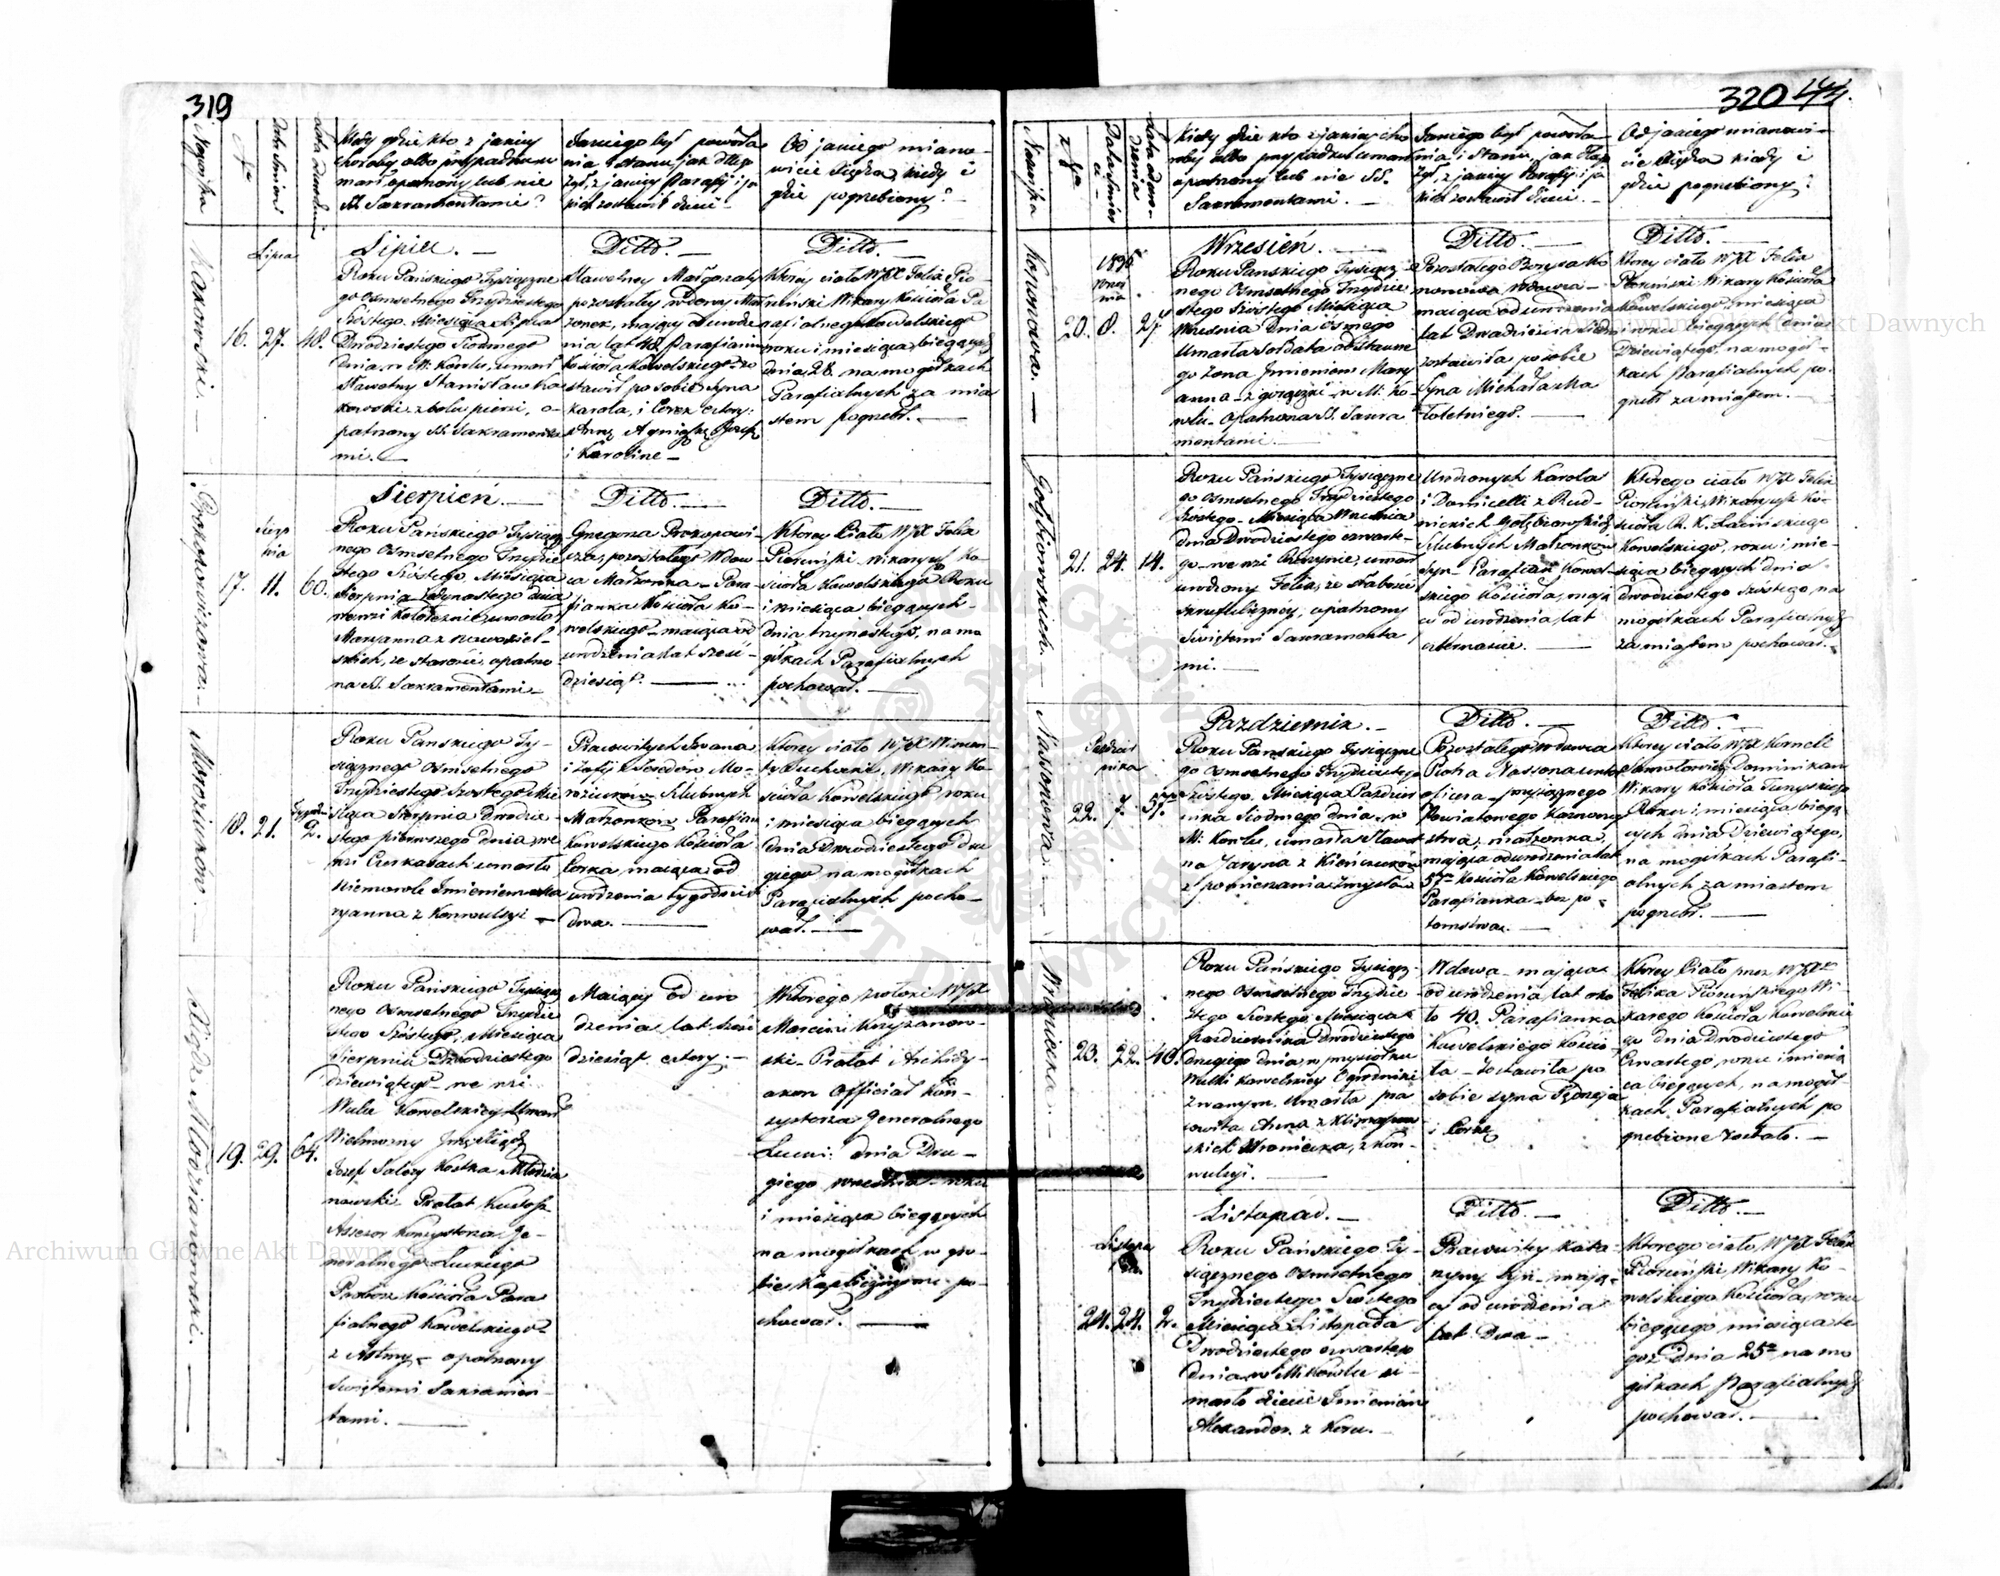 319
Nazwiska
No
Data Śmierci
Kiedy gdzie kto z jakiey
choroby albo przypadku u-
marł opatrzony lub nie
SS. Sakramentami?
Jakiego był powoła-
nia i stanu, jak długo
żył, z jakiey Parafij i ja-
kich zostawił dzieci
Od jakiego miano-
wicie Xiędza, kiedy i
gdzie pogrzebiony?
Makowski.
Lipca
16. 27. 48.
Lipiec.
Roku Pańskiego Tysiączne-
go Osmsetnego Trzydziestego
Szóstego Miesiąca Lipca
Dwudziestego Siódmego
dnia, w M. Kowlu, umarł
Sławetny Stanisław Ma-
kowski, z bolu piersi, o-
patrzony SS. Sakramenta-
mi.
Ditto.
Sławetney Małgorzaty
pozostałey wdowy Mał-
żonek, mający od urodze-
nia lat 48. Parafianin
Kościoła Kowelskiego zo-
stawił po sobie syna
Karola, i Corek cztery:
Annę Agnieszkę Józefę
i Karolinę
Ditto.
Którey ciało WJX Felix Pio-
ruński Wikary Kościoła Pa-
rafialnego Kowelskiego
roku i miesiąca bieżących
dnia 28. na mogiłkach
Parafialnych za mia-
stem pogrzebł.
Prokopowiczowa.
Sierp
nia
17. 11. 60.
Sierpień.
Roku Pańskiego Tysiącz-
nego Osmsetnego Trzydzie-
stego Szóstego, Miesiąca
Sierpnia Jedynastego dnia
we wsi Kołodeżnie, umarła
Maryanna z
skich, ze starości, opatrzo-
na SS. Sakramentami
Ditto.
Grzegorza Prokopowi-
cza, pozostałego Wdow-
ca Małżonka Para-
fianka Kościoła Ko-
welskiego maiąca od
urodzenia lat sześć-
dziesiąt.
Ditto.
Którey Ciało WJX Felix
Pioruński wikaryusz Ko-
ścioła Kowelskiego Roku
i miesiąca bieżących
dnia trzynastego, na mo-
giłkach Parafialnych
pochował.
Moroziukow.
18. 21. Tygodni 2.
Roku Pańskiego Ty-
siącznego Osmsetnego
Trzydziestego Szóstego Mie-
siąca Sierpnia Dwudzie-
stego pierwszego dnia, we
wsi Czerkasach umarło
niemowle Imieniem Ma-
ryanna z Konwulsyi
Prawowitych Iwana
i Zofij z Fiedorów Mo-
roziuków Szlubnych
Małżonkow Parafian
Kowelskiego Kościoła
Corka maiąca od
urodzenia tygodni
dwa.
Którey ciało WJX Wincen-
ty Suchecki, Wikary Ko-
ścioła Kowelskiego roku
i miesiąca bieżących
dnia Dwudziestego Dru-
giego na mogiłkach
Parafialnych pocho-
wał.
Xiądz Młodzianowski.
19. 29. 64.
Roku Pańskiego Tysiącz-
nego Osmsetnego Trzydzie-
stego Szóstego, Miesiąca
Sierpnia Dwudziestego
dziewiątego we wsi
Wulce Kowelskiey Umarł
Wielmożny Jmć Xiądz
Jozef Salezy Kostka Młodzia-
nowski Prałat Kustosz
Assesor Konsystorza Je-
neralnego Łuckiego
Proboszcz Kościoła Para-
fialnego Kowelskiego
z Astmy opatrzony
Świętemi Sakramen-
tami.
Maiący od uro-
dzenia lat sześć-
dziesiąt cztery.
Którego zwłoki WJX
Marcin Krzyżanow-
ski Prałat Archidy-
akon Officiał Kon-
systorza Generalnego
Łucki: dnia Dru-
giego września roku
i miesiąca bieżących
na mogiłkach w gro-
bie Kaplicznym po-
chował.
320
Nazwiska
Data Śmierci
Kiedy gdzie kto z jakiey cho-
roby albo przypadku umarł
opatrzony lub nie SS.
Sakramentami.
Jakiego był powoła-
nia i stanu, jak długo
żył, z jakiey Parafij i ja-
kich zostawił dzieci.
Od jakiego mianowi-
cie Xiędza kiedy i
gdzie pogrzebiony?
Kononowa.
1836
Wrześ
nia
20. 8. 27.
Wrzesień.
Roku Pańskiego Tysiącz-
nego Osmsetnego Trzydzie-
stego Szóstego Miesiąca
Września Dnia Osmego
Umarła Sołdata odstawne-
go żona Imieniem Mary-
anna z gorączki w M. Ko-
wlu opatrzona SS. Sakra-
mentami.
Ditto.
Pozostałego Borysa Ko-
nonowa wdowca
maiąca od urodzenia
lat Dwadzieścia Siedm
zostawiła po sobie
Syna Michała
letniego.
Ditto.
Którey ciało WJX Felix
Pioruński Wikary Kościoła
Kowelskiego, miesiąca
i roku bieżących dnia
Dziewiątego, na mogił-
kach Parafialnych po-
grzebł za miastem.
Gołębiowskich.
21. 24. 14.
Roku Pańskiego Tysiączne-
go Osmsetnego Trzydziestego
Szóstego Miesiąca Września
dnia Dwudziestego czwarte-
go we wsi umarł
urodzony Felix, ze słabości
Skrofuliczney, opatrzony
Świętemi Sakramenta-
mi.
Urodzonych Karola
i Domicelli z Rud-
nickich Gołębiowskich
Szlubnych Małżonków
Syn Parafian Kowel-
skiego Kościoła, mają-
cy od urodzenia lat
czternaście.
Którego ciało WJX Felix
Pioruński, Wikaryusz Ko-
ścioła R. K. Łacińskiego
Kowelskiego, roku i mie-
siąca bieżących dnia
Dwudziestego Szóstego, na
mogiłkach Parafialnych
za miastem pochował.
Nassonowa.
Paździer
nika
22. 7. 57.
Pazdziernik.
Roku Pańskiego Tysiączne-
go Osmsetnego Trzydziestego
Szóstego Miesiąca Paździer-
nika Siódmego dnia, w
M. Kowlu, umarła Sławet-
na Jaryna z
z pomieszania zmysłów
Ditto.
Pozostałego wdowca
Piotra Nassonowa
oficera przysiężnego
Powiatowego Kaznaczey-
stwa, małżonka,
mająca od urodzenia lat
57. Kościoła Kowelskiego
Parafianka bez po-
tomstwa.
Ditto.
Którey ciało WJX Korneli
Samołowicz Dominikan
Wikary Kościoła Turyskiego
Roku i miesiąca bieżą-
cych dnia Dziewiątego,
na mogiłkach Parafi-
alnych za miastem
pogrzebł.
Wroniecka.
23. 22. 40.
Roku Pańskiego Tysiącz-
nego Osmsetnego Trzydzie-
stego Szóstego Miesiąca
Pazdziernika Dwudziestego
drugiego dnia, w przysiołku
Wulki Kowelskiey Ogrodniki
zwanym, Umarła pra-
cowita Anna z
skich Wroniecka, z kon-
wulsyi.
Wdowa mająca
od urodzenia lat oko-
ło 40. Parafianka
Kowelskiego Kościo-
ła zostawiła po
sobie syna
i Corkę
Którey Ciało przez WJX
Felixa Pioruńskiego Wi-
karego Kościoła Kowelskie-
go dnia Dwudziestego
Czwartego, roku i miesią-
ca bieżących, na mogił-
kach Parafialnych po-
grzebione zostało.
Listopa
da
24. 24. 2.
Listopad.
Roku Pańskiego Ty-
siącznego Osmsetnego
Trzydziestego Szóstego
Miesiąca Listopada
Dwudziestego czwartego
dnia w M. Kowlu u-
marło dziecie Imieniem
Alexander z Koru.
Ditto.
Prawowitey Kata-
rzyny Syn mają-
cy od urodzenia
lat Dwa
Ditto.
Którego ciało, WJX Felix
Pioruński, Wikary Ko-
welskiego Kościoła, roku
bieżącego miesiąca te-
goż Dnia 25 na mo-
giłkach Parafialnych
pochował.
Archiwum Główne Akt Dawnych
Archiwum Główne Akt Dawnych